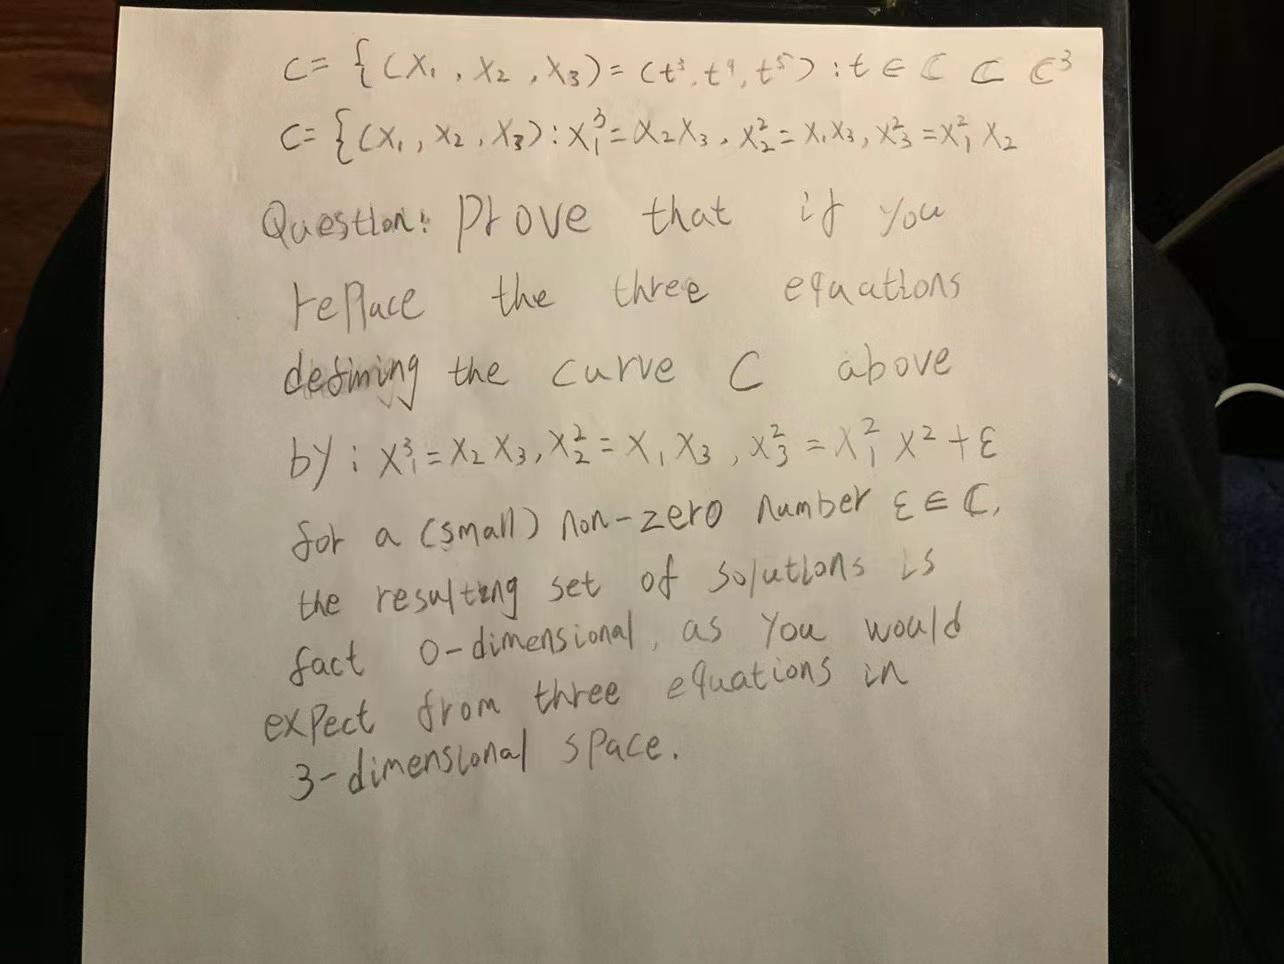 C= { (x₁, x₂, x₃) = (t³, t⁴, t⁵) : t ∈ ℂ ⊂ ℂ³
C= { (x₁, x₂, x₃) : x₁³ = x₂x₃, x₂² = x₁x₃, x₃² = x₁² x₂
Question: Prove that if you
replace the three equations
defining the curve C above
by : x₁³ = x₂x₃, x₂² = x₁x₃, x₃² = x₁² x² + ε
for a (small) non-zero number ε ∈ ℂ,
the resulting set of solutions is
fact 0-dimensional, as you would
expect from three equations in
3-dimensional space.